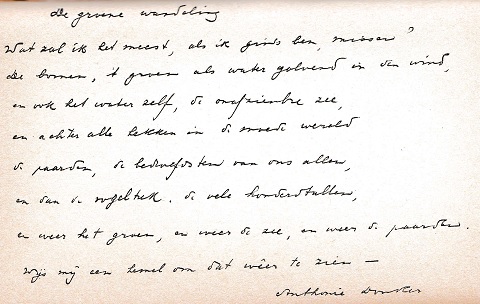 De groene wandeling
Wat zal ik het meest, als ik ginds ben, missen?
De bomen, 't groen als water golvend in den wind,
en ook het water zelf, de onafzienbre zee,
en achter alle hekken in de moede wereld
de paarden, de bedroefdsten van ons allen,
en dan de vogeltrek. de vele honderdtallen,
en weer het groen, en weer de zee, en weer de paarden.
Wijs mij een hemel om dat wêer te zien —
Anthonie Donker